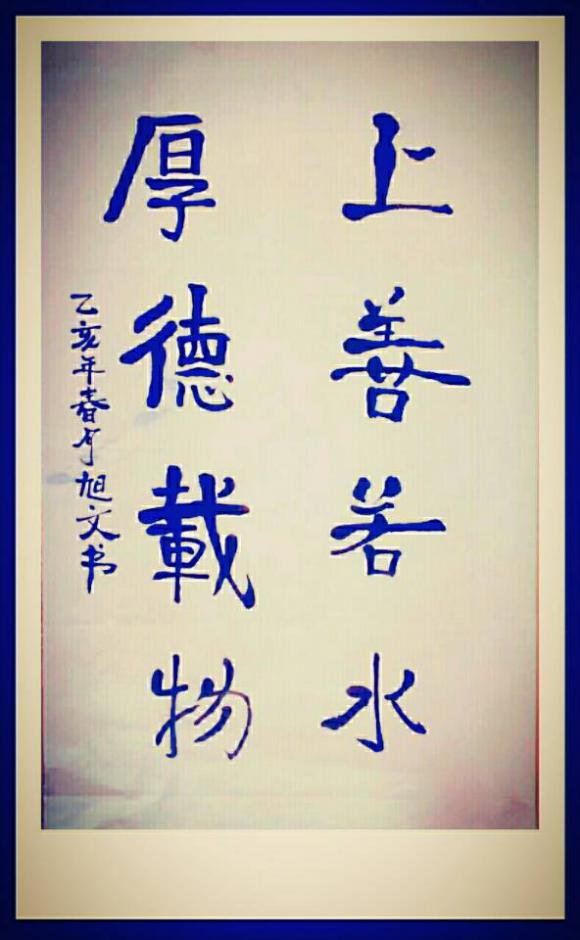 上善若水
厚德載物
乙亥年春月旭文书